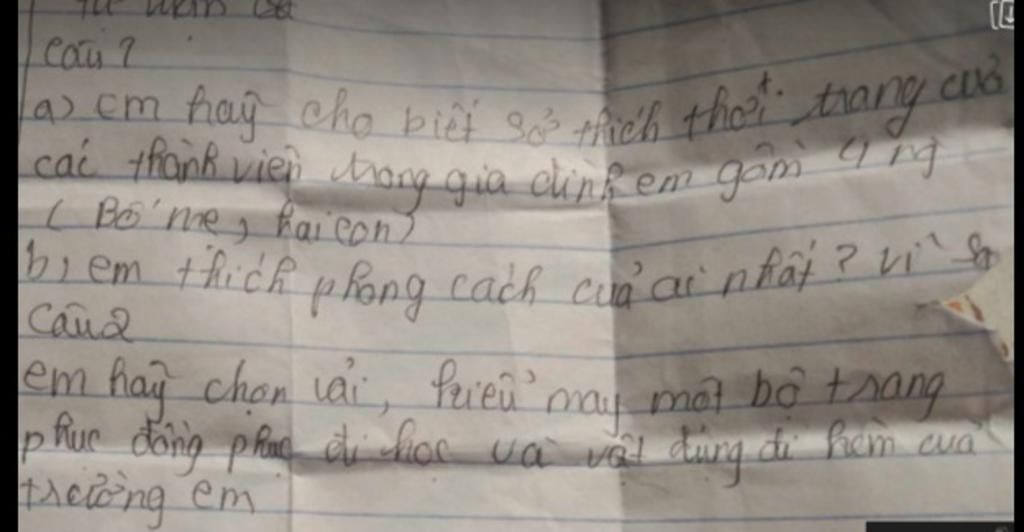 câu 1
a) em hãy cho biết sở thích thời trang của
các thành viên trong gia đình em gồm 4 ng
( Bố mẹ, hai con)
b, em thích phong cách của ai nhất? vì
câu 2
em hãy chọn vải, kiểu may một bộ trang
phục đồng phục đi học và vật dụng đi kèm của
trường em